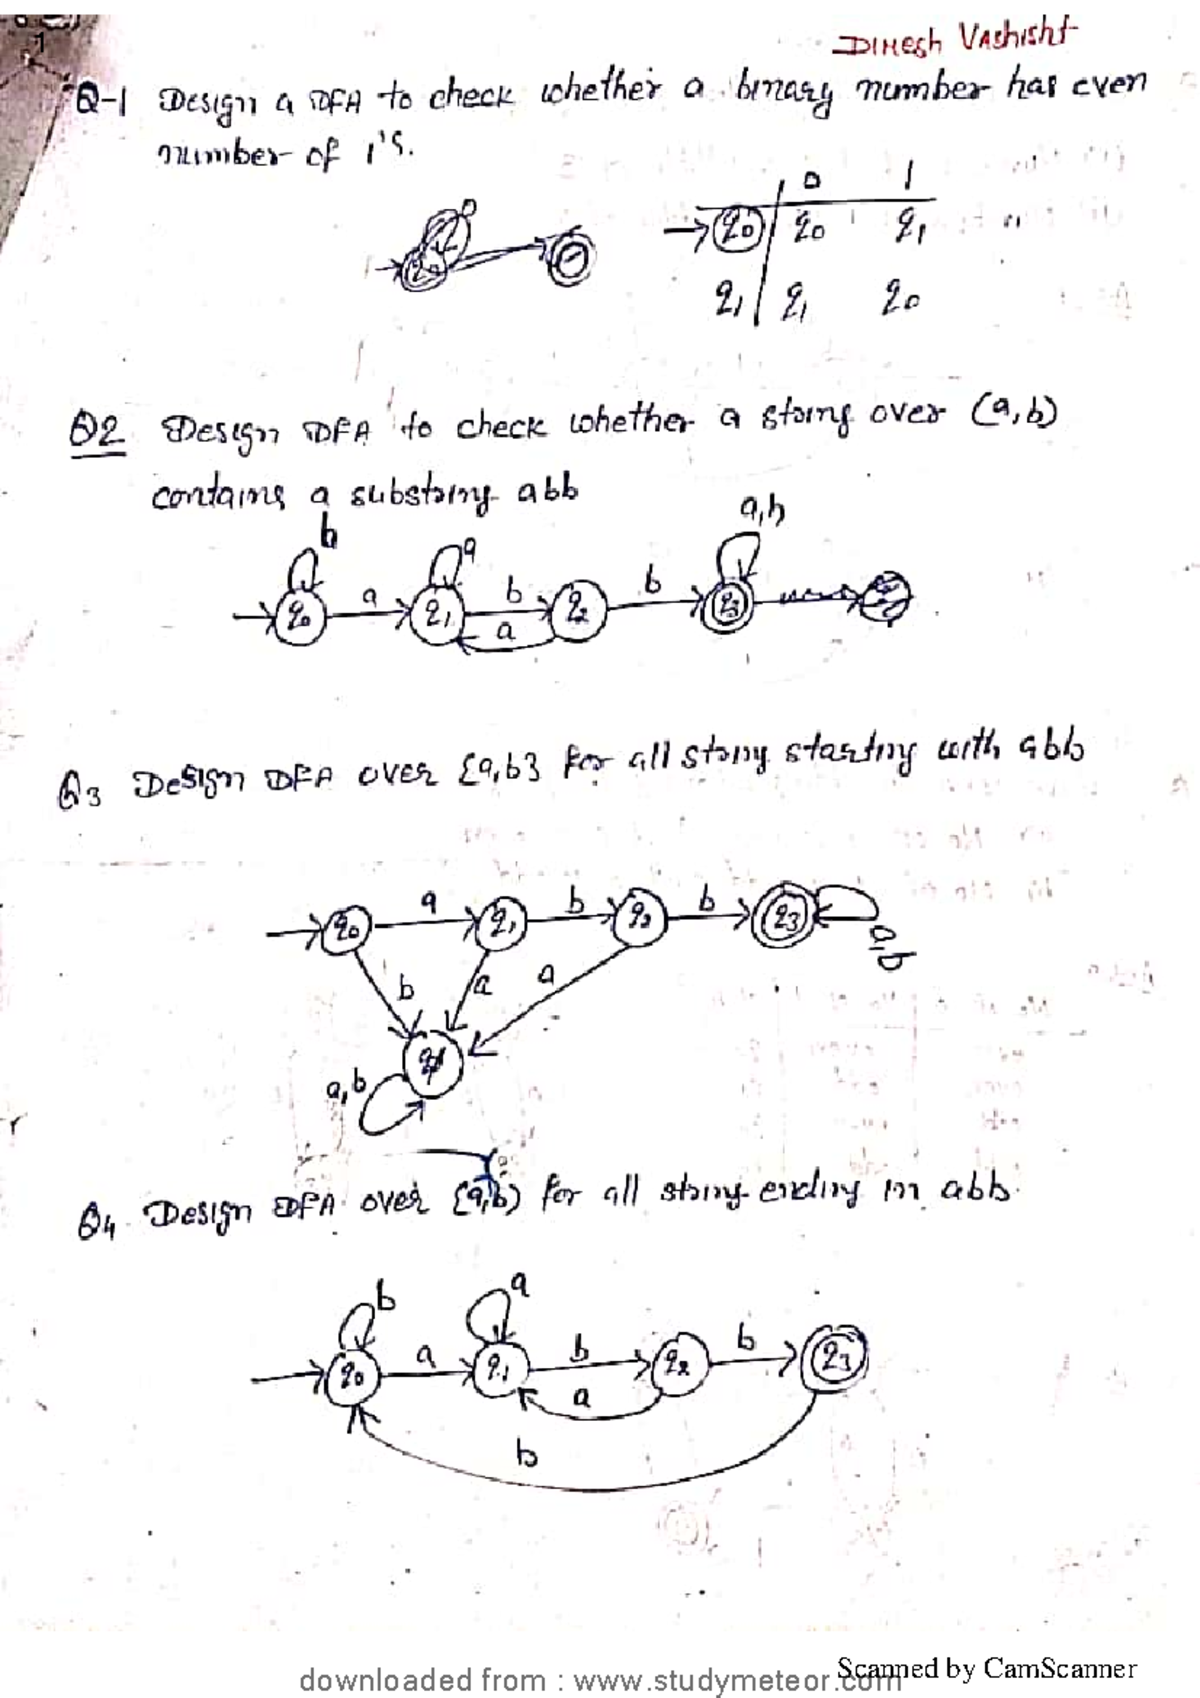 1
Dinesh Vashisht
Q-1 Design a DFA to check whether a binary number has even
number of 1's.
0 1
q0 q0 q1
q1 q1 q0
Q2 Design DFA to check whether a string over (a,b)
contains a substring abb
b a a,b
q0 a q1 b q2 b q3
a
Q3 Design DFA over {a,b} for all string starting with abb
q0 a q1 b q2 b q3
b a a a,b
a,b
Q4 Design DFA over {a,b) for all string ending in abb.
b a
q0 a q1 b q2 b q3
a
b
Scanned by CamScanner
downloaded from : www.studymeteor.com